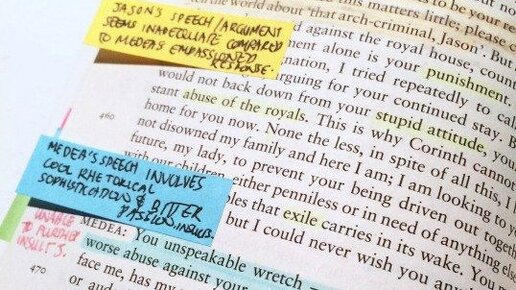 JASON'S SPEECH / ARGUMENT
SEEMS INADEQUATE COMPARED
TO MEDEA'S EMPASSIONED
RESPONSE.
the world about 'that arch-criminal, Jason'. But
against the royal house, coun
ment alone is your punishment
nation, I tried repeatedly to cal
arguing for your continued stay. B
would not back down from your stupid attitude, you
stant abuse of the royals. This is why Corinth cannot
460
home for you now. None the less, in spite of all this, I
not disowned my family and here I am; I am looking to y
future, my lady, to prevent your being driven out toget
with our children, either penniless or in need of anything else
les that exile carries in its wake. You
but I could never wish you any
MEDEA'S SPEECH INVOLVES
COOL RHETORICAL
SOPHISTICATION & BITTER
PASSION.
UNABLE
TO
INSULTS.
MEDEA: You unspeakable wretch –
worse abuse against your
470
face me, has my
or aud